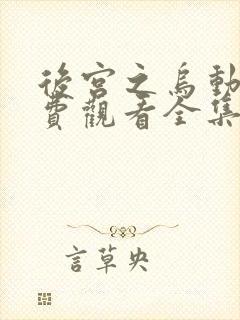 後宮之烏動
費觀看全集
言草央